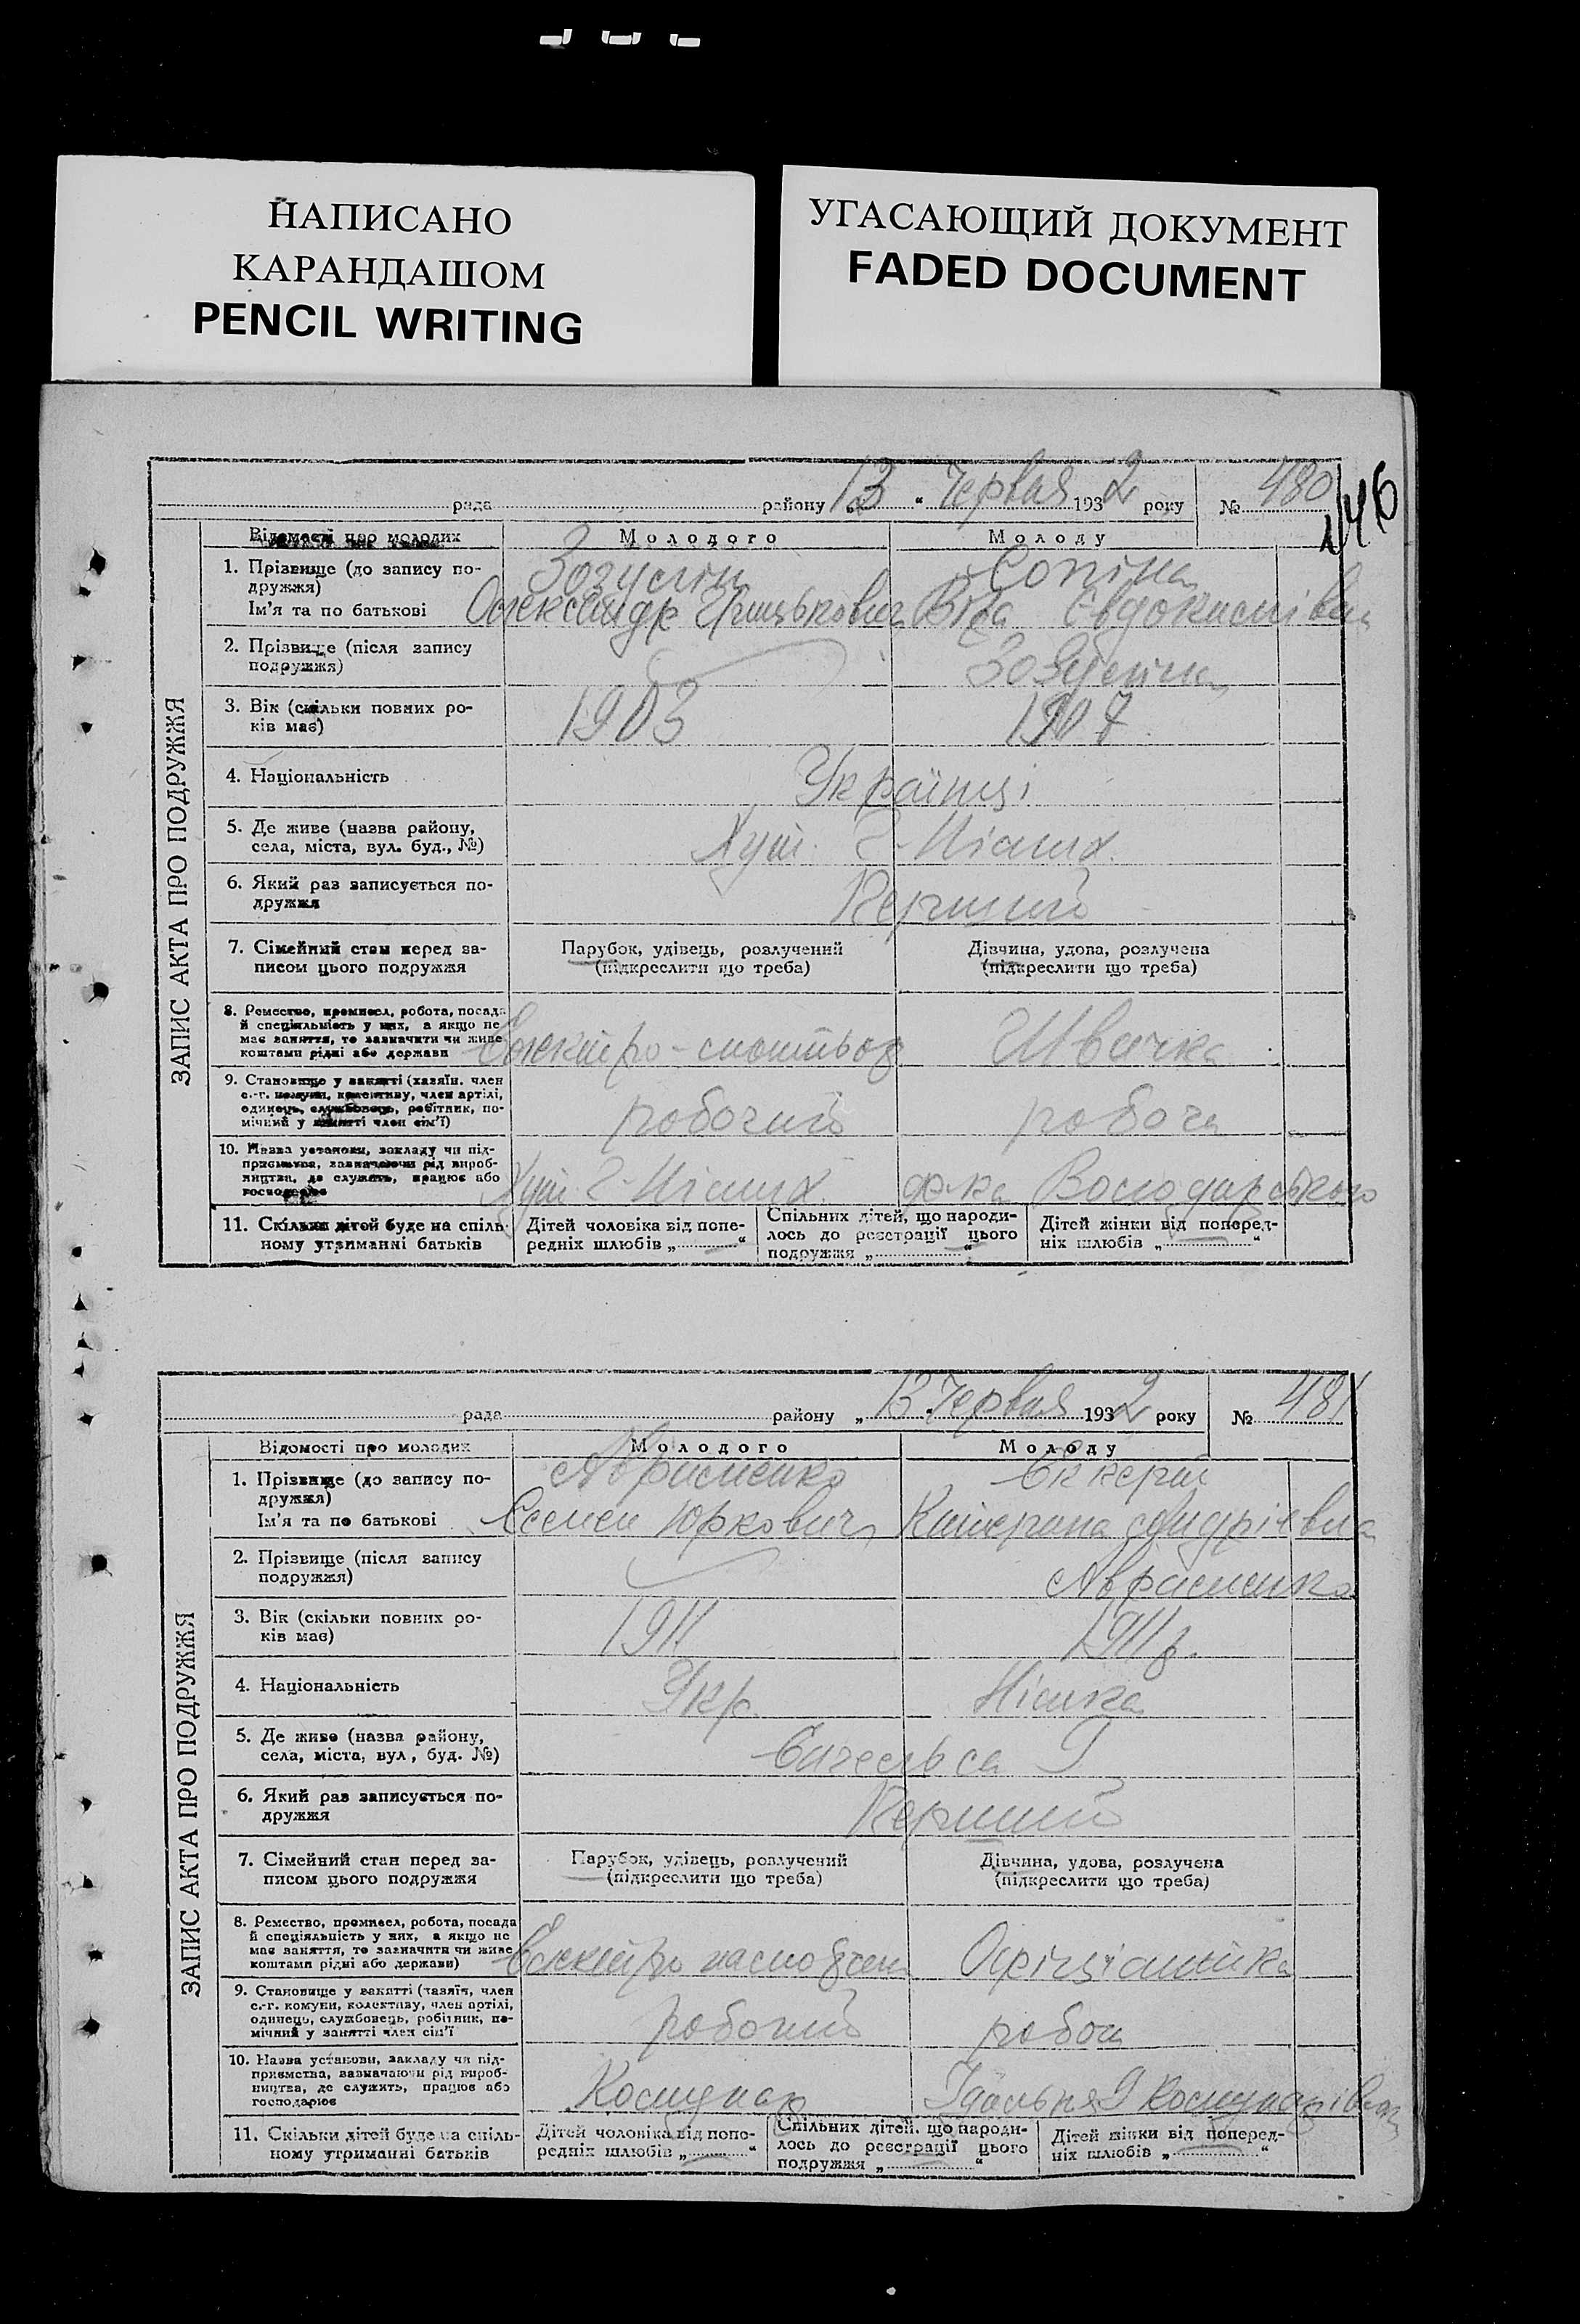 НАПИСАНО
КАРАНДАШОМ
PENCIL WRITING
УГАСАЮЩИЙ ДОКУМЕНТ
FADED DOCUMENT
146
ЗАПИС АКТА ПРО ПОДРУЖЖЯ
рада району „13“ Червня 1932 року № 480
Відомості про молодих Молодого Молоду
1. Прізвище (до запису по-
дружжя)
Ім'я та по батькові Олександр Грицькович Віра Євдокимівна
2. Прізвище (після запису
подружжя)
3. Вік (скільки повних ро- 1903 1907
ків має)
4. Національність Українці
5. Де живе (назва району,
села, міста, вул. буд., №)
6. Який раз записується по- Перший
дружжя
7. Сімейний стан перед за- Парубок, удівець, розлучений Дівчина, удова, розлучена
писом цього подружжя (підкреслити що треба) (підкреслити що треба)
8. Ремество, промисел, робота, посада
й спеціяльність у них, а якщо не
має заняття, то зазначити чи живе Швачка
коштами рідні або держави
9. Становище у занятті (хазяїн, член
с.-г. комуни, колективу, член артілі,
одинець, службовець, робітник, по- робочий робоча
мічний у занятті член сім'ї)
10. Назва установи, закладу чи під-
приємства, зазначаючи рід вироб-
ництва, де служить, працює або Володарського
господарює
11. Скільки дітей буде на спіль- Дітей чоловіка від попе- Спільних дітей, що народи- Дітей жінки від поперед-
ному утриманні батьків редніх шлюбів „—“ лось до реєстрації цього ніх шлюбів „—“
подружжя „—“
ЗАПИС АКТА ПРО ПОДРУЖЖЯ
рада району „13“ Червня 1932 року № 481
Відомості про молодих Молодого Молоду
1. Прізвище (до запису по- Авраменко Еккерт
дружжя)
Ім'я та по батькові Семен Юркович Катерина Андріївна
2. Прізвище (після запису
подружжя) Авраменко
3. Вік (скільки повних ро- 1911 1911 р.
ків має)
4. Національність Укр. Німка
5. Де живе (назва району, Енгельса
села, міста, вул, буд. №)
6. Який раз записується по- Перший
дружжя
7. Сімейний стан перед за- Парубок, удівець, розлучений Дівчина, удова, розлучена
писом цього подружжя (підкреслити що треба) (підкреслити що треба)
8. Ремество, промисел, робота, посада
й спеціяльність у них, а якщо не
має заняття, то зазначити чи живе Офіціантка
коштами рідні або держави)
9. Становище у занятті (хазяїн, член
с.-г. комуни, колективу, член артілі,
одинець, службовець, робітник, по- робочий
мічний у занятті член сім'ї
10. Назва установи, закладу чи під-
приємства, зазначаючи рід вироб-
ництва, де служить, працює або Їдальня
господарює
11. Скільки дітей буде на спіль- Дітей чоловіка від попе- Спільних дітей, що народи- Дітей жінки від поперед-
ному утриманні батьків редніх шлюбів „—“ лось до реєстрації цього ніх шлюбів „—“
подружжя „—“